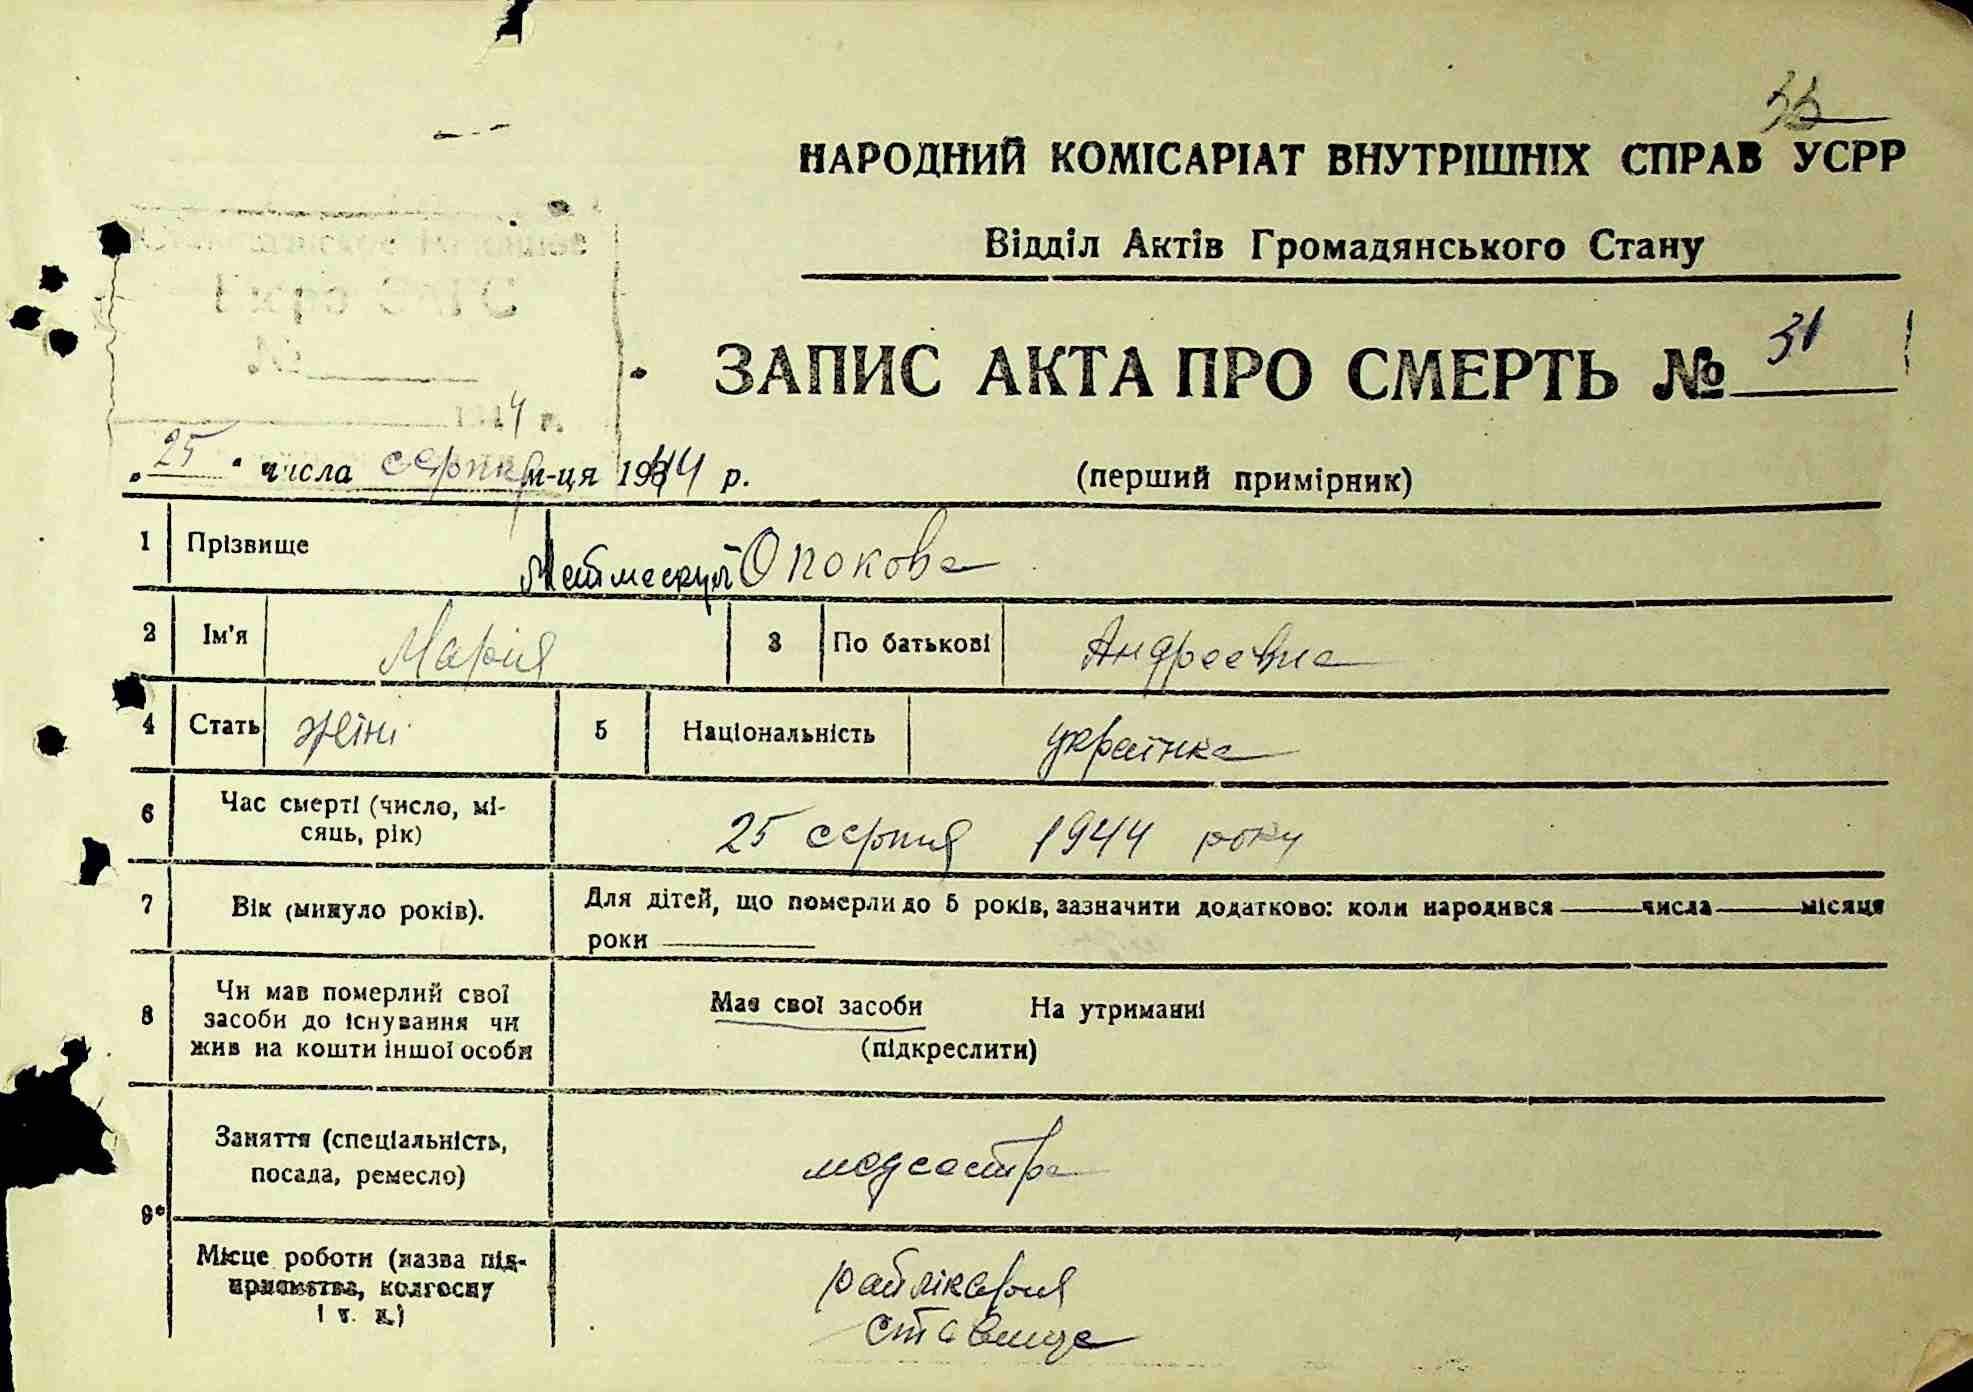 33
НАРОДНИЙ КОМІСАРІАТ ВНУТРІШНІХ СПРАВ УСРР
Відділ Актів Громадянського Стану
Бюро ЗАГС
№
1944 г.
ЗАПИС АКТА ПРО СМЕРТЬ № 31
"25" числа серпня м-ця 1944 р. (перший примірник)
1 Прізвище Опокова
2 Ім'я Марія 3 По батькові Андреевна
4 Стать жіні 5 Національність українка
6 Час смерті (число, мі-
сяць, рік) 25 серпня 1944 року
7 Вік (минуло років). Для дітей, що померли до 5 років, зазначити додатково: коли народився числа місяця
роки
8 Чи мав померлий свої
засоби до існування чи
жив на кошти іншої особи
Мав свої засоби На утриманні
(підкреслити)
9 Заняття (спеціальність,
посада, ремесло) медсестра
Місце роботи (назва під-
приємства, колгоспу
і т. д.)
райлікарня
Ставище